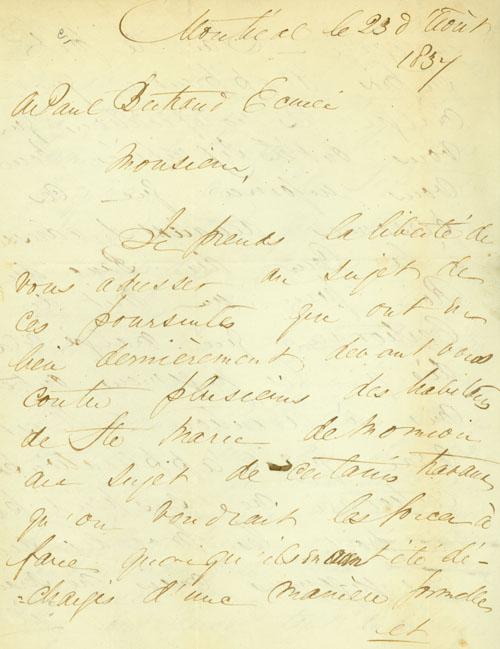 Montréal le 23 d'Août
1837
A Paul Bertrand Ecuier
Monsieur,
Je prends la liberté de
vous adresser au sujet de
ces poursuites qui ont eu
lieu dernièrement devant vous
contre plusieurs des habitans
de Ste Marie de Monnoir
au sujet de certains travaux
qu'on voudrait les forcer à
faire quoiqu'ils en aient été dé-
-chargés d'une manière formelle
et